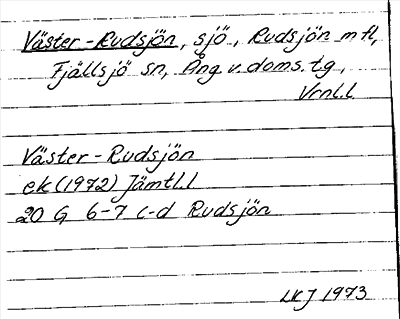 Väster-Rudsjön, sjö, Rudsjön m fl,
Fjällsjö sn, Ång v. doms. tg,
Vrnl.l.
Väster-Rudsjön
ek (1972) Jämtl.l
20 G 6-7 c-d Rudsjön
LKJ 1973